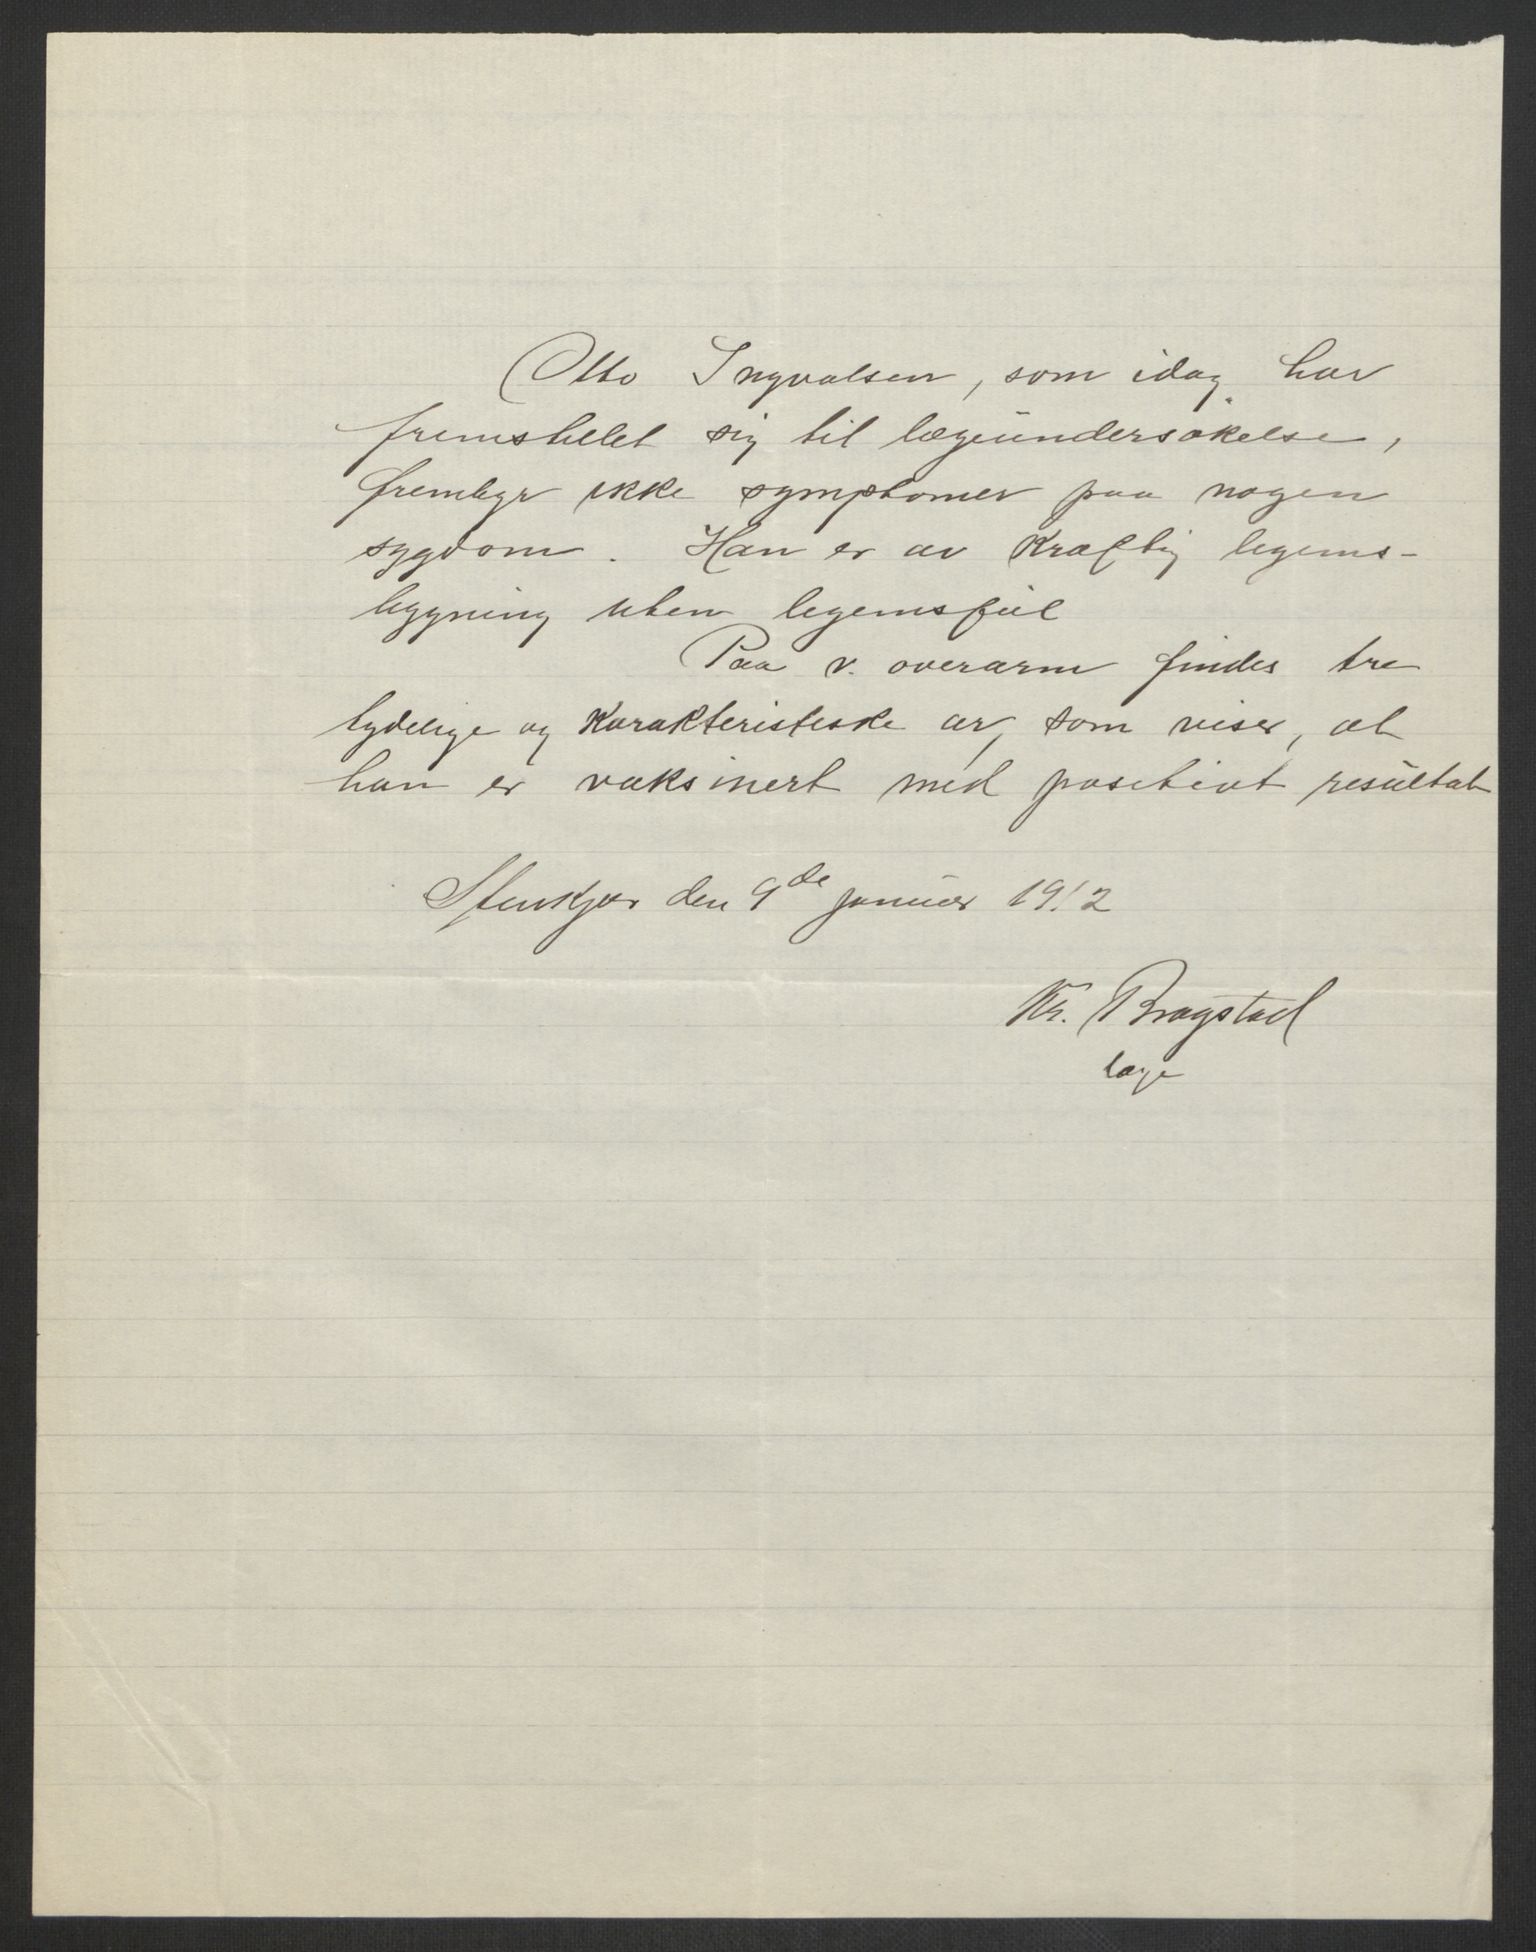 Otto Ingvalsen, som idag har
fremstillet sig til lægeundersøkelse,
frembyr ikke symptomer paa nogen
sygdom. Han er av kraftig legems-
bygning uten legemsfeil
Paa v. overarm findes tre
tydelige og karakteristiske ar, som viser, at
han er vaksinert med positivt resultat
Stenkjær den 9de januar 1912
Kr. Bragstad
læge